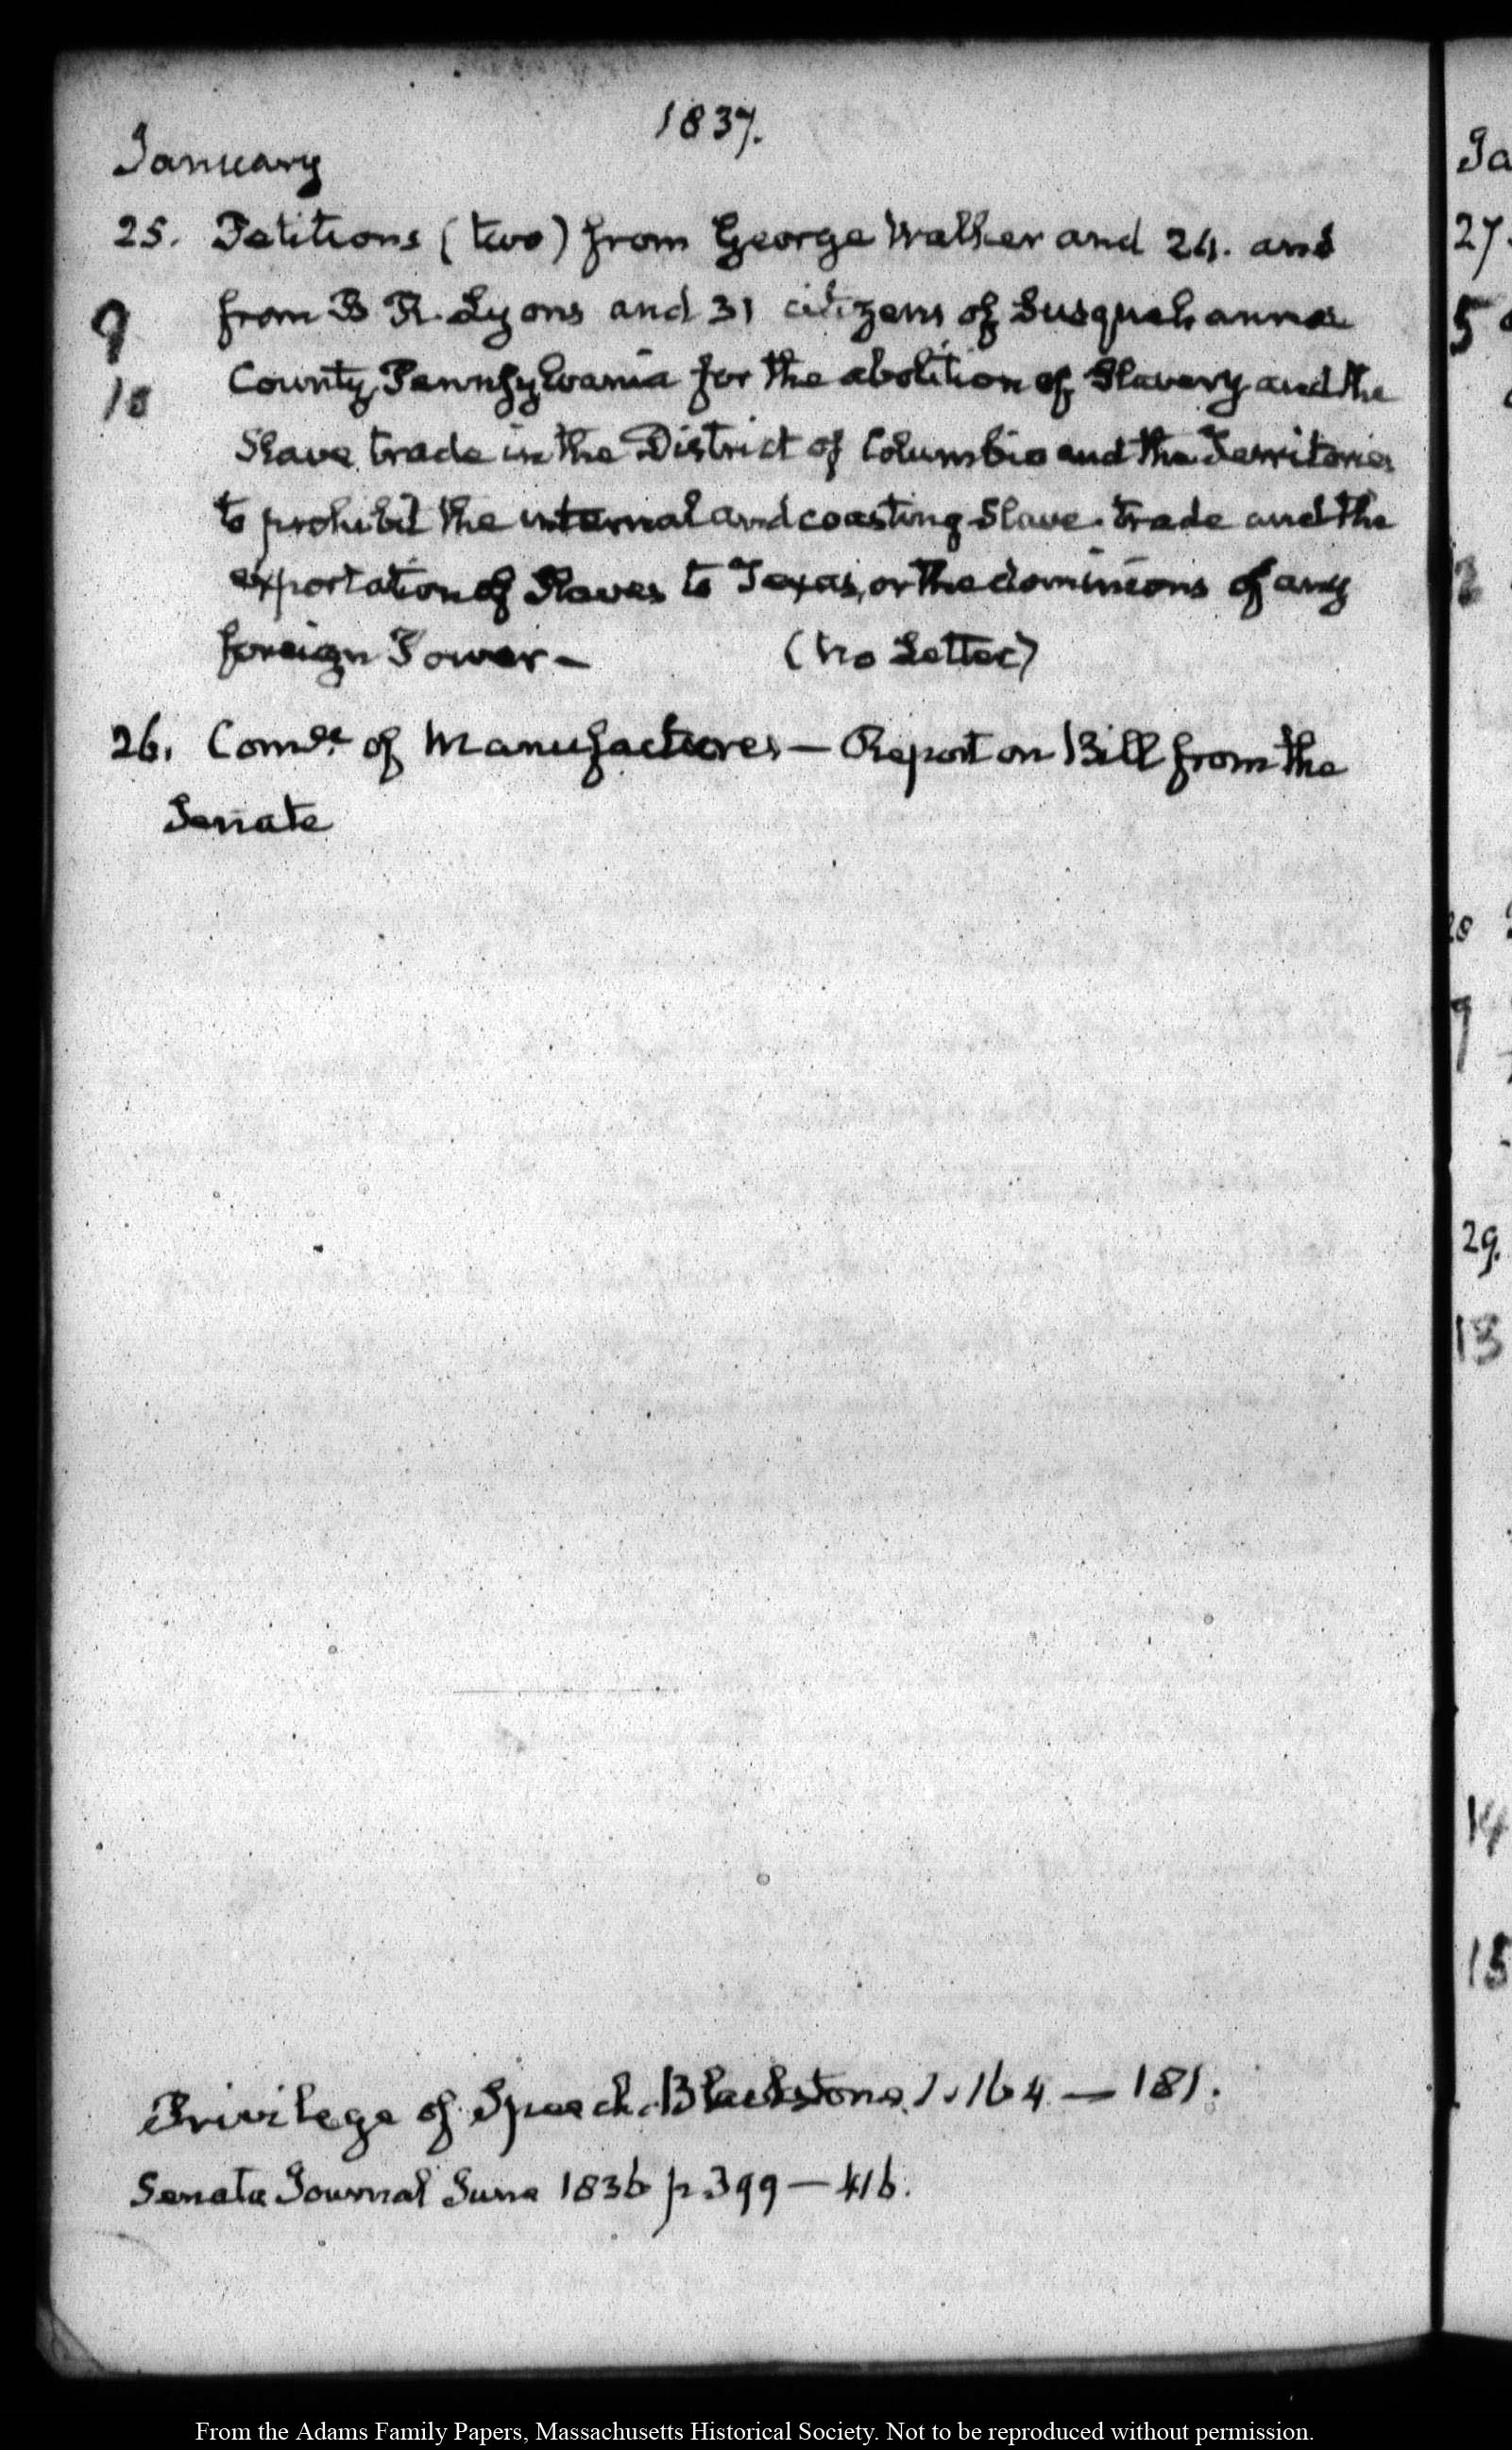 1837.
January
25. Petitions (two) from George Walker and 24. and
9 from B R. Lyons and 31 citizens of Susquehanna
10 County, Pennsylvania for the abolition of Slavery and the
Slave trade in the District of Columbia and the Territories
to prohibit the internal and coasting Slave trade and the
exportation of Slaves to Texas, or the dominions of any
foreign Power— (No Letter)
26. Comee. of Manufactures — Report on Bill from the
Senate
Privilege of Speech. Blackstone 1. 164 — 181.
Senate Journal June 1836 p 399 — 416.
Ja
27
5
28
9
29.
13
14
15
From the Adams Family Papers, Massachusetts Historical Society. Not to be reproduced without permission.